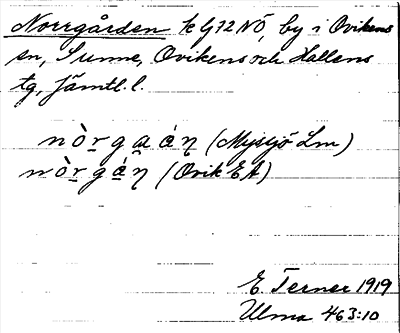 Norrgården k G72 NÖ, by i Ovikens
sn, Sunne, Ovikens och Hallens
tg, Jämtl. l.
nòrgaán (Myssjö Lm)
nòrgán (Ovik EA)
E. Terner 1919
Ulma 463:10